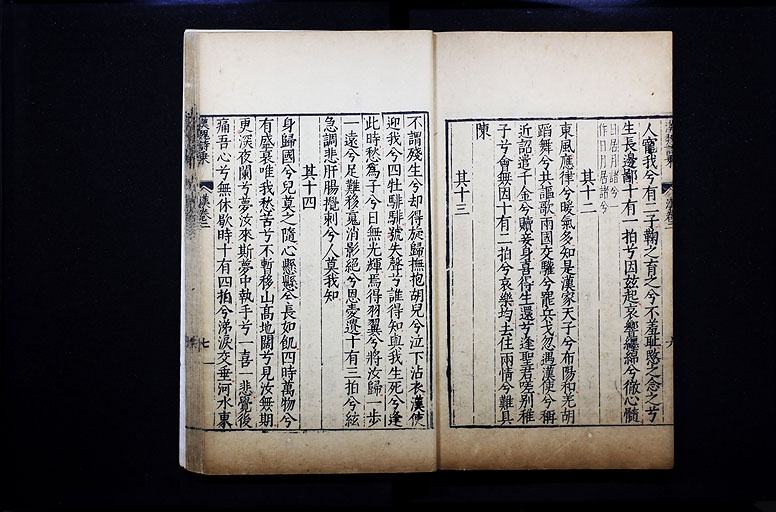 人寵我兮有二子鞠之育之兮不羞恥愍之念之兮
生長邊鄙十有一拍兮因茲起哀響纏綿兮徹心髓
日居月諸兮
作日月居諸兮
其十二
東風應律兮暖氣多知是漢家天子兮布陽和羌胡
蹈舞兮共謳歌兩國交驩兮罷兵戈忽遇漢使兮稱
近詔遣千金兮贖妾身喜得生還兮逢聖君嗟別稚
子兮會無因十有二拍兮哀樂均去住兩情兮難具
陳
其十三
不謂殘生兮却得旋歸撫抱胡兒兮泣下沾衣漢使
迎我兮四牡騑騑號失聲兮誰得知與我生死兮逢
此時愁為子兮日無光輝焉得羽翼兮將汝歸一步
一遠兮足難移䰟消影絕兮恩愛遺十有三拍兮絃
急調悲肝腸攪刺兮人莫我知
其十四
身歸國兮兒莫之隨心懸懸兮長如飢四時萬物兮
有盛衰唯我愁苦兮不暫移山高地闊兮見汝無期
更深夜闌兮夢汝來斯夢中執手兮一喜一悲覺後
痛吾心兮無休歇時十有四拍兮涕淚交垂河水東
漢魏詩集
漢卷二
七